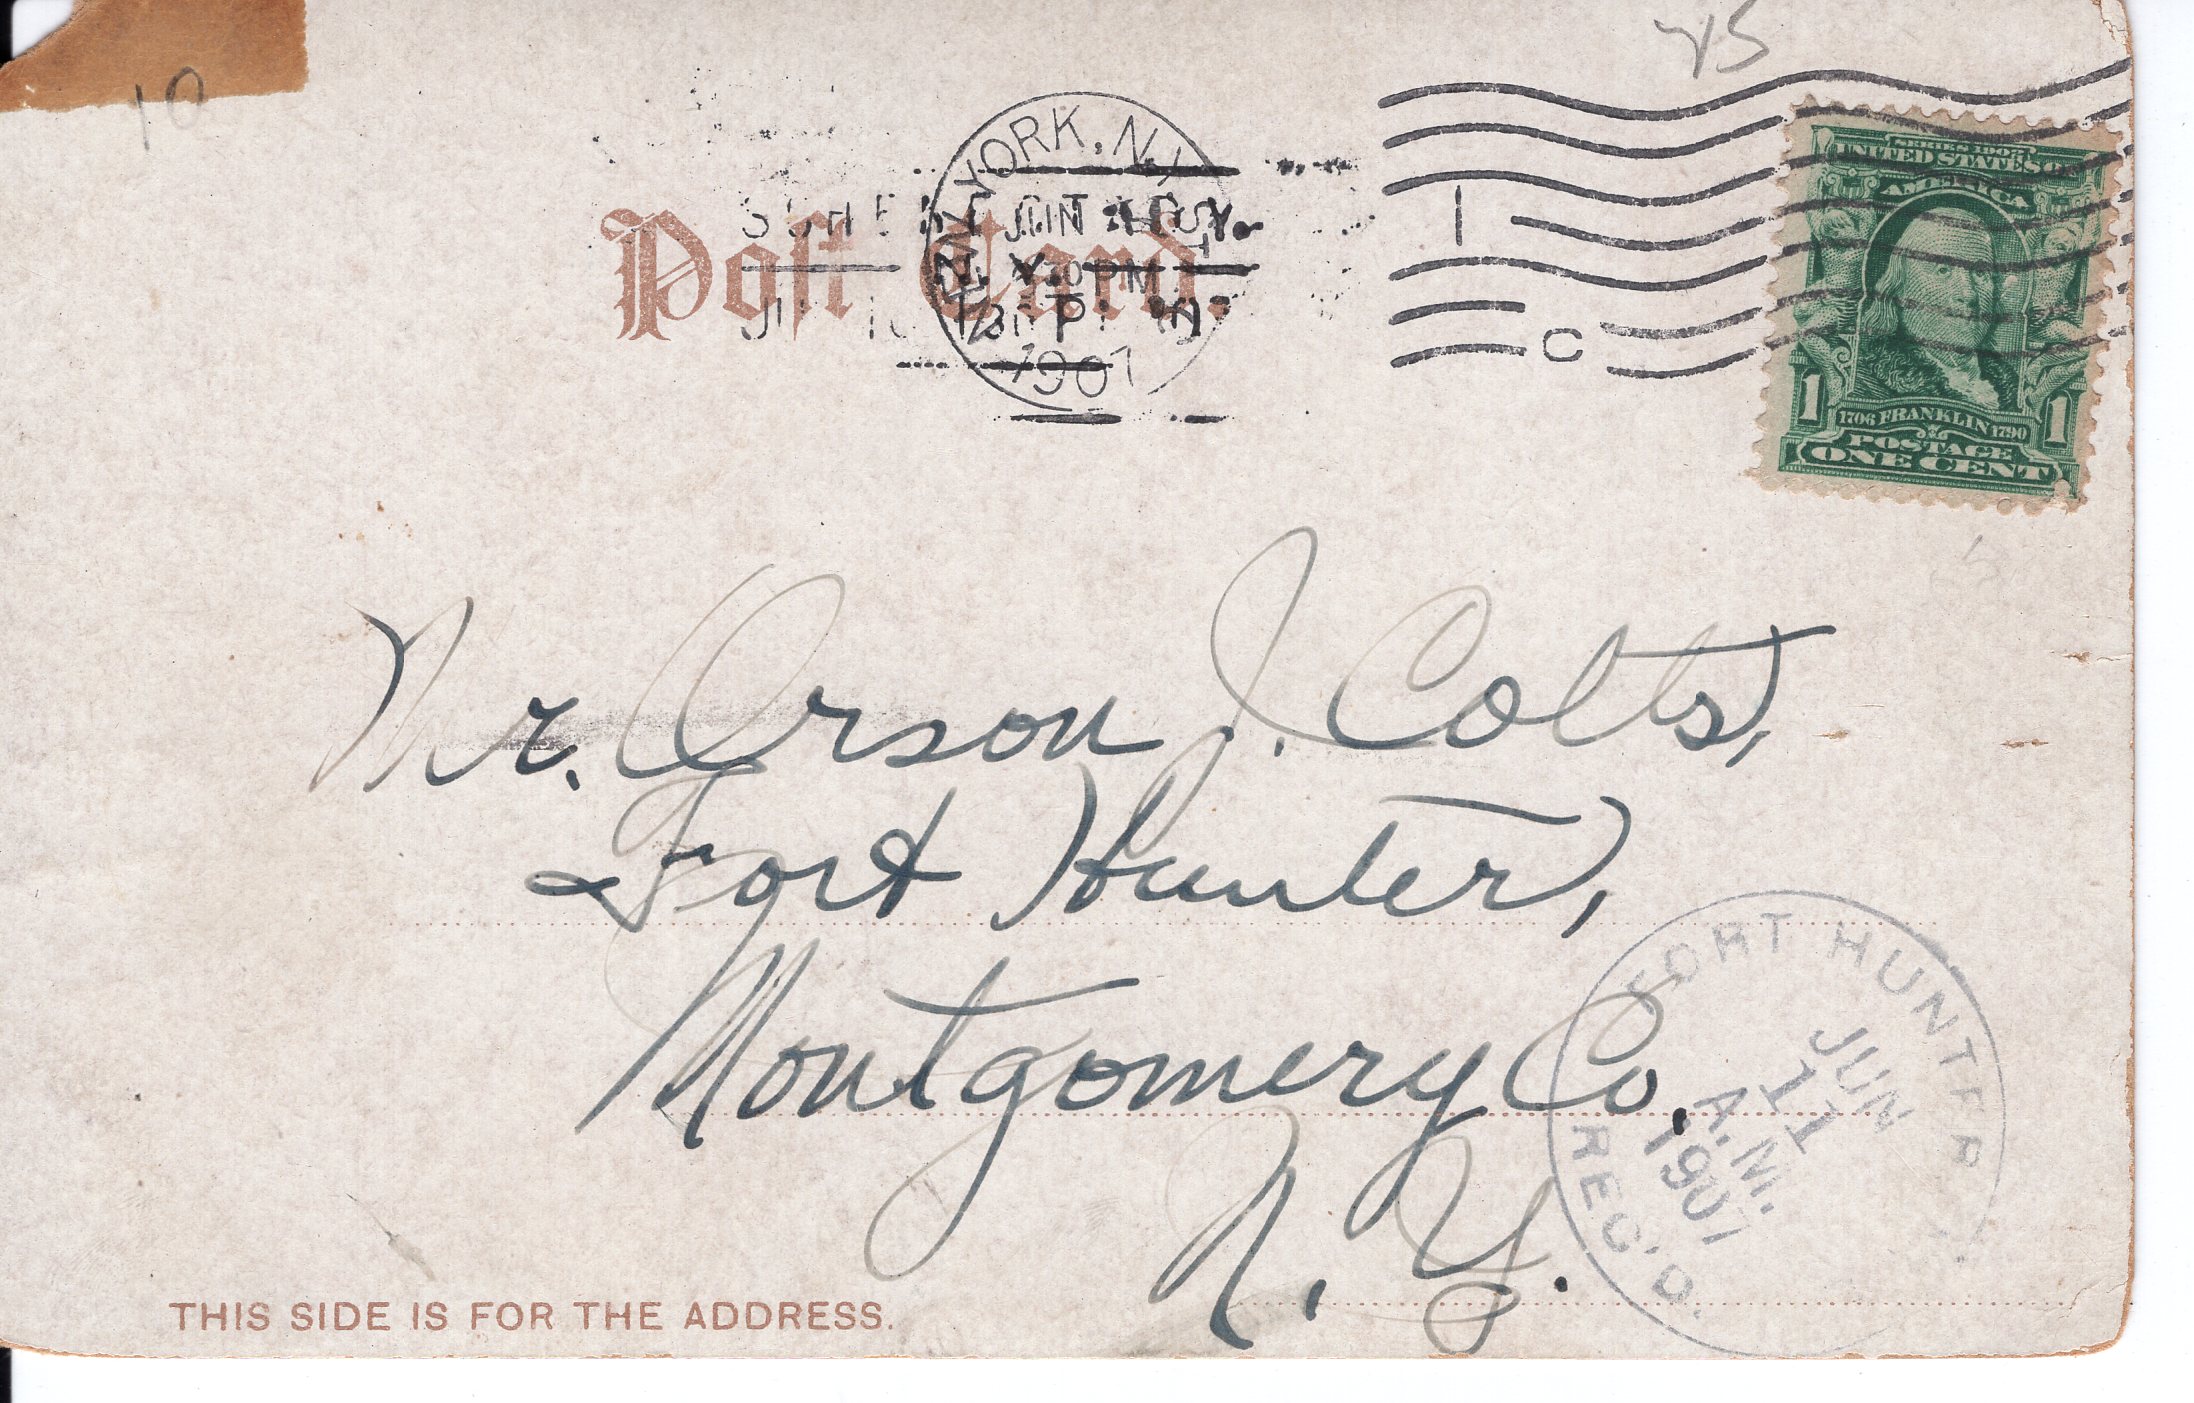 25
10
NEW YORK, N.Y.
JUN
30 PM
1907
N. Y.
1
C
Post Card.
SERIES 1902
UNITED STATES OF
AMERICA
1706 FRANKLIN 1790
POSTAGE
1 1
ONE CENT
Mr. Orson J. Colts,
Fort Hunter,
Montgomery Co.
N. Y.
FORT HUNTER
JUN
11
A.M.
1907
REC'D.
THIS SIDE IS FOR THE ADDRESS.